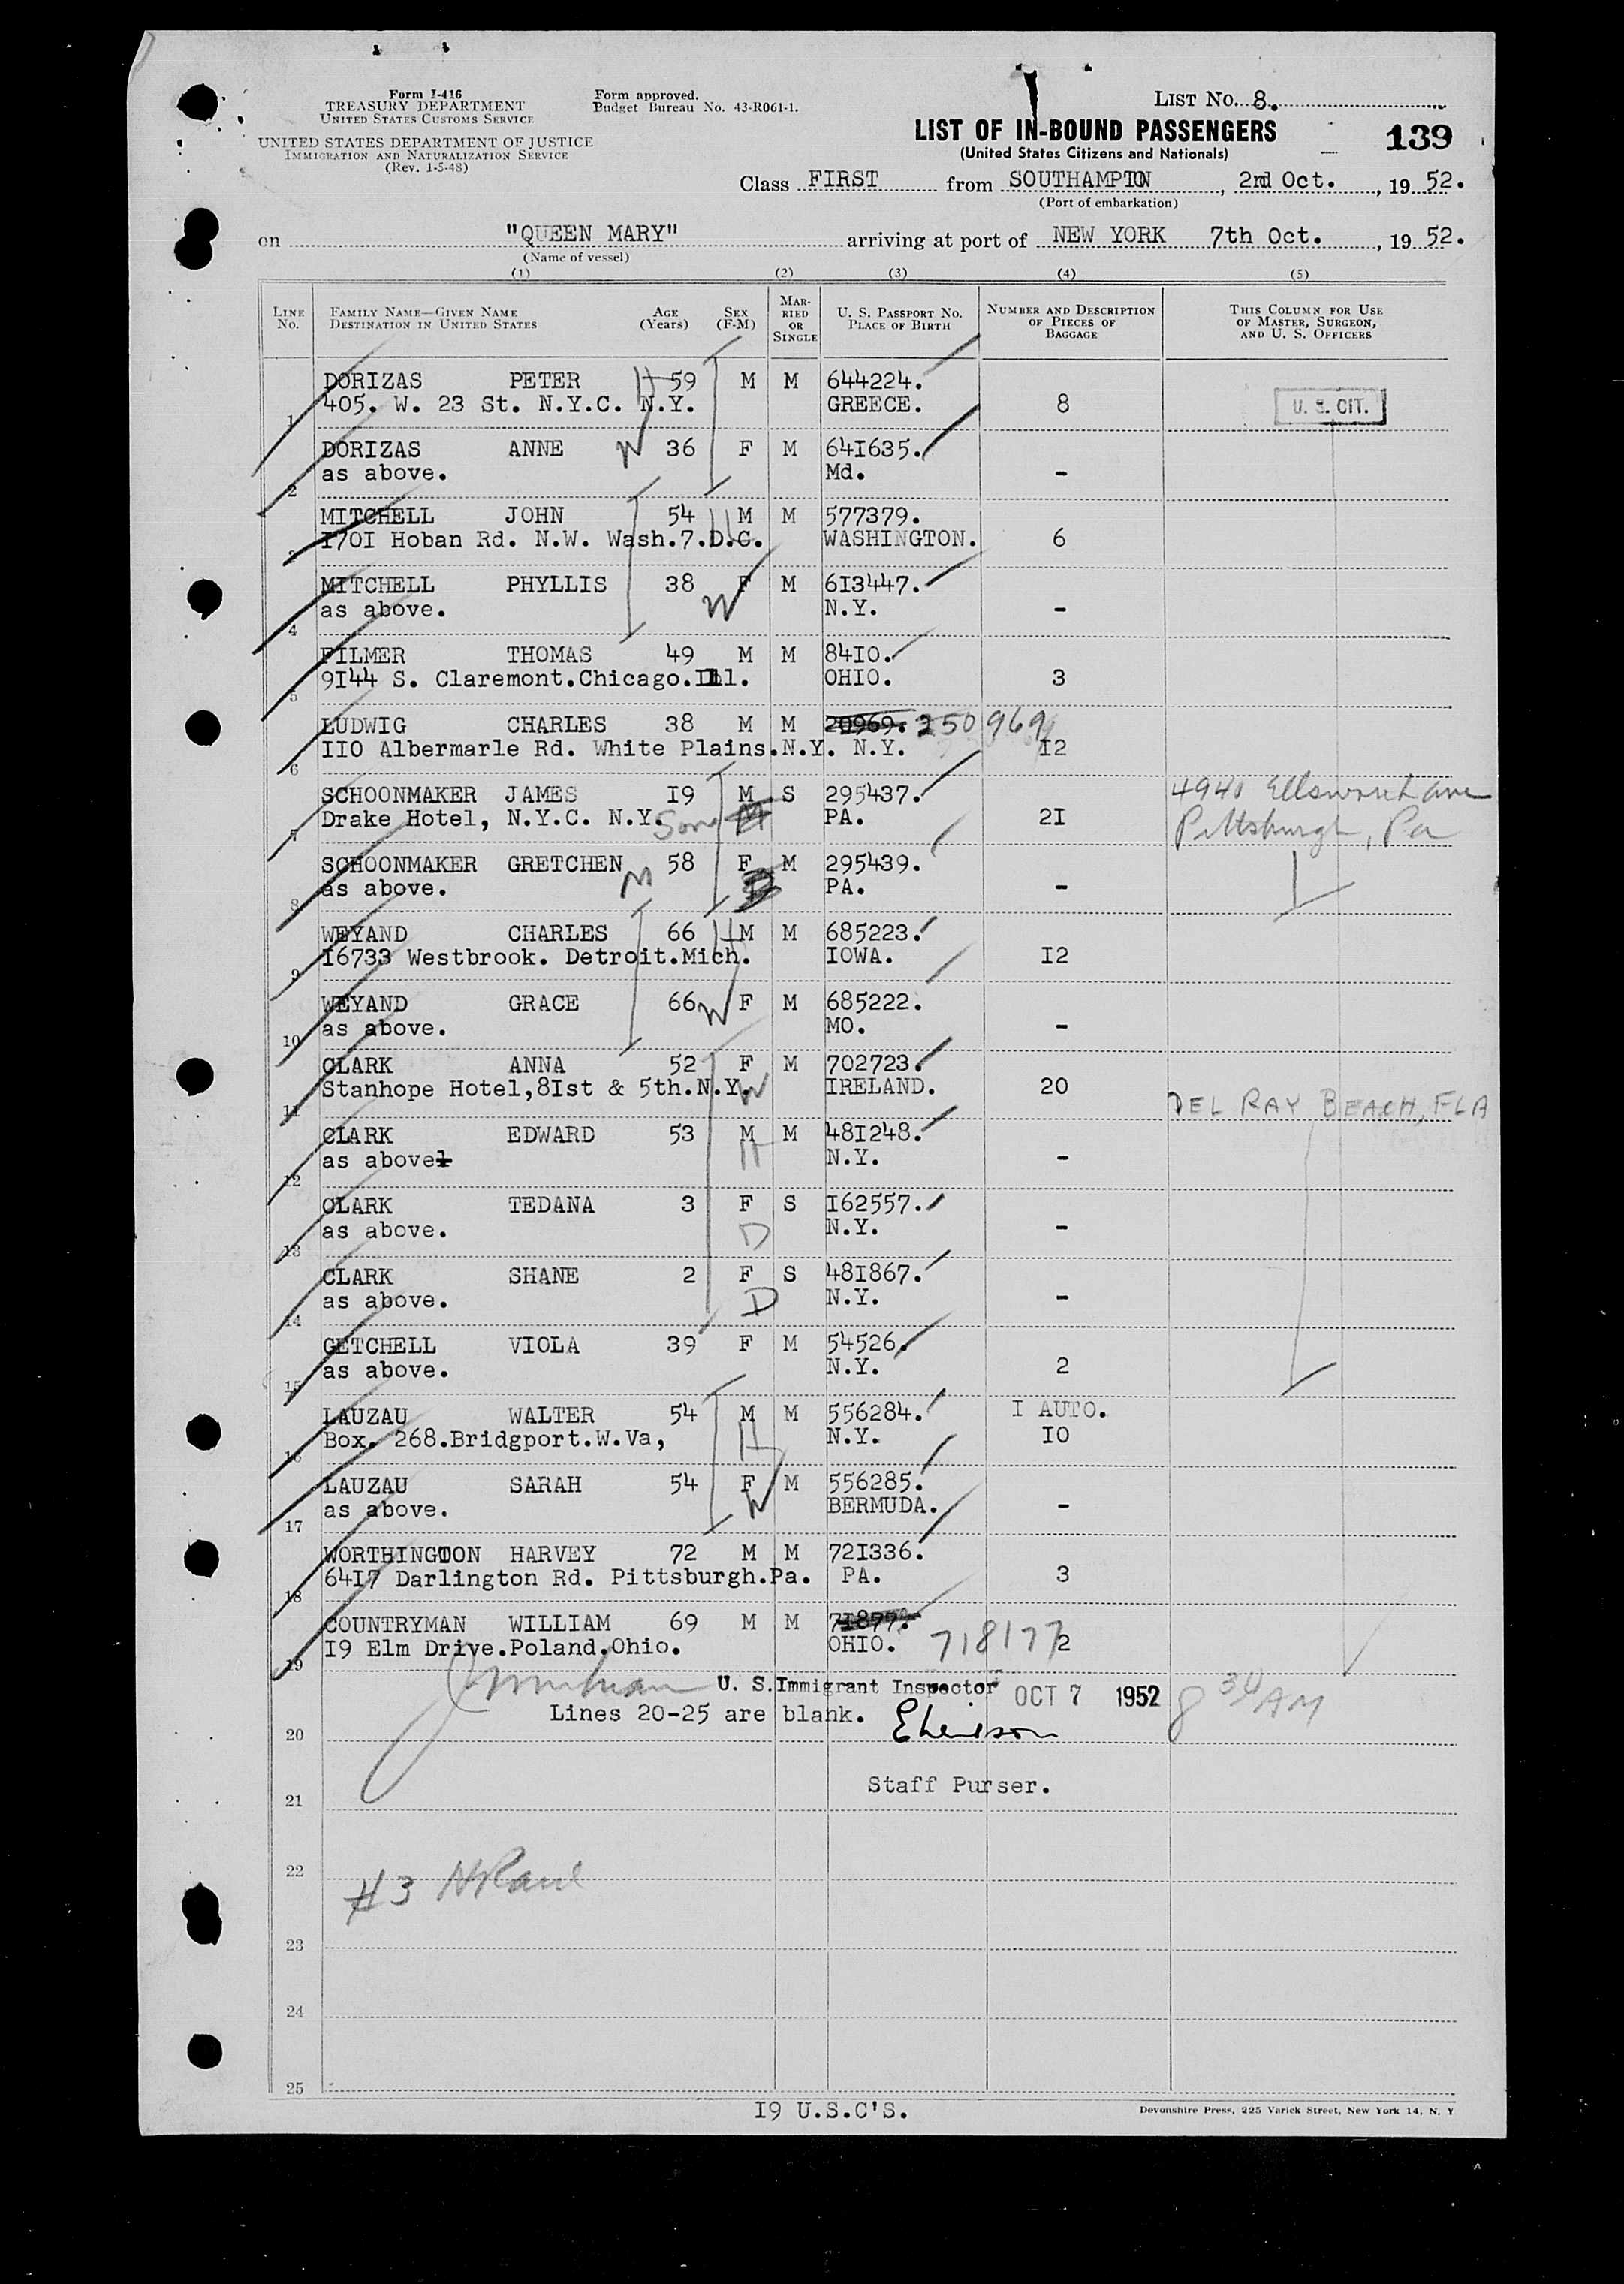 Form I-416
TREASURY DEPARTMENT
UNITED STATES CUSTOMS SERVICE
UNITED STATES DEPARTMENT OF JUSTICE
IMMIGRATION AND NATURALIZATION SERVICE
(Rev. 1-5-48)
Form approved.
Budget Bureau No. 43-R061-1.
LIST No. 8.
LIST OF IN-BOUND PASSENGERS
(United States Citizens and Nationals)
139
Class FIRST from SOUTHAMPTON, 2nd Oct., 1952.
(Port of embarkation)
on "QUEEN MARY" arriving at port of NEW YORK 7th Oct., 1952.
(Name of vessel)
(1) (2) (3) (4) (5)
LINE No. FAMILY NAME—GIVEN NAME DESTINATION IN UNITED STATES AGE (Years) SEX (F-M) MARRIED OR SINGLE U. S. PASSPORT NO. PLACE OF BIRTH NUMBER AND DESCRIPTION OF PIECES OF BAGGAGE THIS COLUMN FOR USE OF MASTER, SURGEON, AND U. S. OFFICERS
DORIZAS PETER H 59 M M 644224.
1 405. W. 23 St. N.Y.C. N.Y. GREECE. 8 U. S. CIT.
DORIZAS ANNE W 36 F M 641635.
2 as above. Md. -
MITCHELL JOHN 54 H M M 577379.
3 1701 Hoban Rd. N.W. Wash.7.D.C. WASHINGTON. 6
MITCHELL PHYLLIS 38 F M 613447.
4 as above. W N.Y. -
FILMER THOMAS 49 M M 8410.
5 9144 S. Claremont.Chicago.Ill. OHIO. 3
LUDWIG CHARLES 38 M M 20969. 250969
6 110 Albermarle Rd. White Plains.N.Y. N.Y. 12
SCHOONMAKER JAMES 19 M S 295437. 4940 Ellsworth ave
7 Drake Hotel, N.Y.C. N.Y. Son M PA. 21 Pittsburgh, Pa
SCHOONMAKER GRETCHEN M 58 F M 295439.
8 as above. PA. -
WEYAND CHARLES 66 H M M 685223.
9 16733 Westbrook. Detroit.Mich. IOWA. 12
WEYAND GRACE 66 W F M 685222.
10 as above. MO. -
CLARK ANNA 52 F M 702723.
11 Stanhope Hotel,81st & 5th.N.Y. W IRELAND. 20 DEL RAY BEACH, FLA
CLARK EDWARD 53 M M 481248.
12 as above H N.Y. -
CLARK TEDANA 3 F S 162557.
13 as above. D N.Y. -
CLARK SHANE 2 F S 481867.
14 as above. D N.Y. -
GETCHELL VIOLA 39 F M 54526.
15 as above. N.Y. 2
LAUZAU WALTER 54 M M 556284. 1 AUTO.
16 Box. 268.Bridgport.W.Va, H N.Y. 10
LAUZAU SARAH 54 F M 556285.
17 as above. W BERMUDA. -
WORTHINGTON HARVEY 72 M M 721336.
18 6417 Darlington Rd. Pittsburgh.Pa. PA. 3
COUNTRYMAN WILLIAM 69 M M 71877.
19 19 Elm Drive.Poland.Ohio. OHIO. 718177 2
U. S. Immigrant Inspector OCT 7 1952 8 30 AM
Lines 20-25 are blank.
20
Staff Purser.
21
22
#3
23
24
25
19 U.S.C'S.
Devonshire Press, 225 Varick Street, New York 14, N. Y